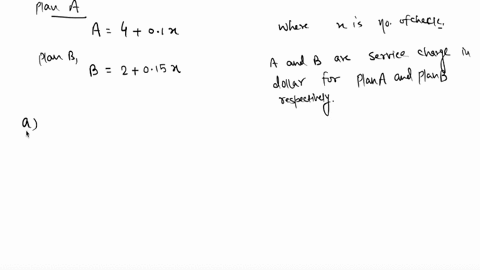 Plan A
A = 4 + 0.1x
plan B,
B = 2 + 0.15x
where x is no. of checks.
A and B are service charge in
dollar for plan A and plan B
respectively.
a)